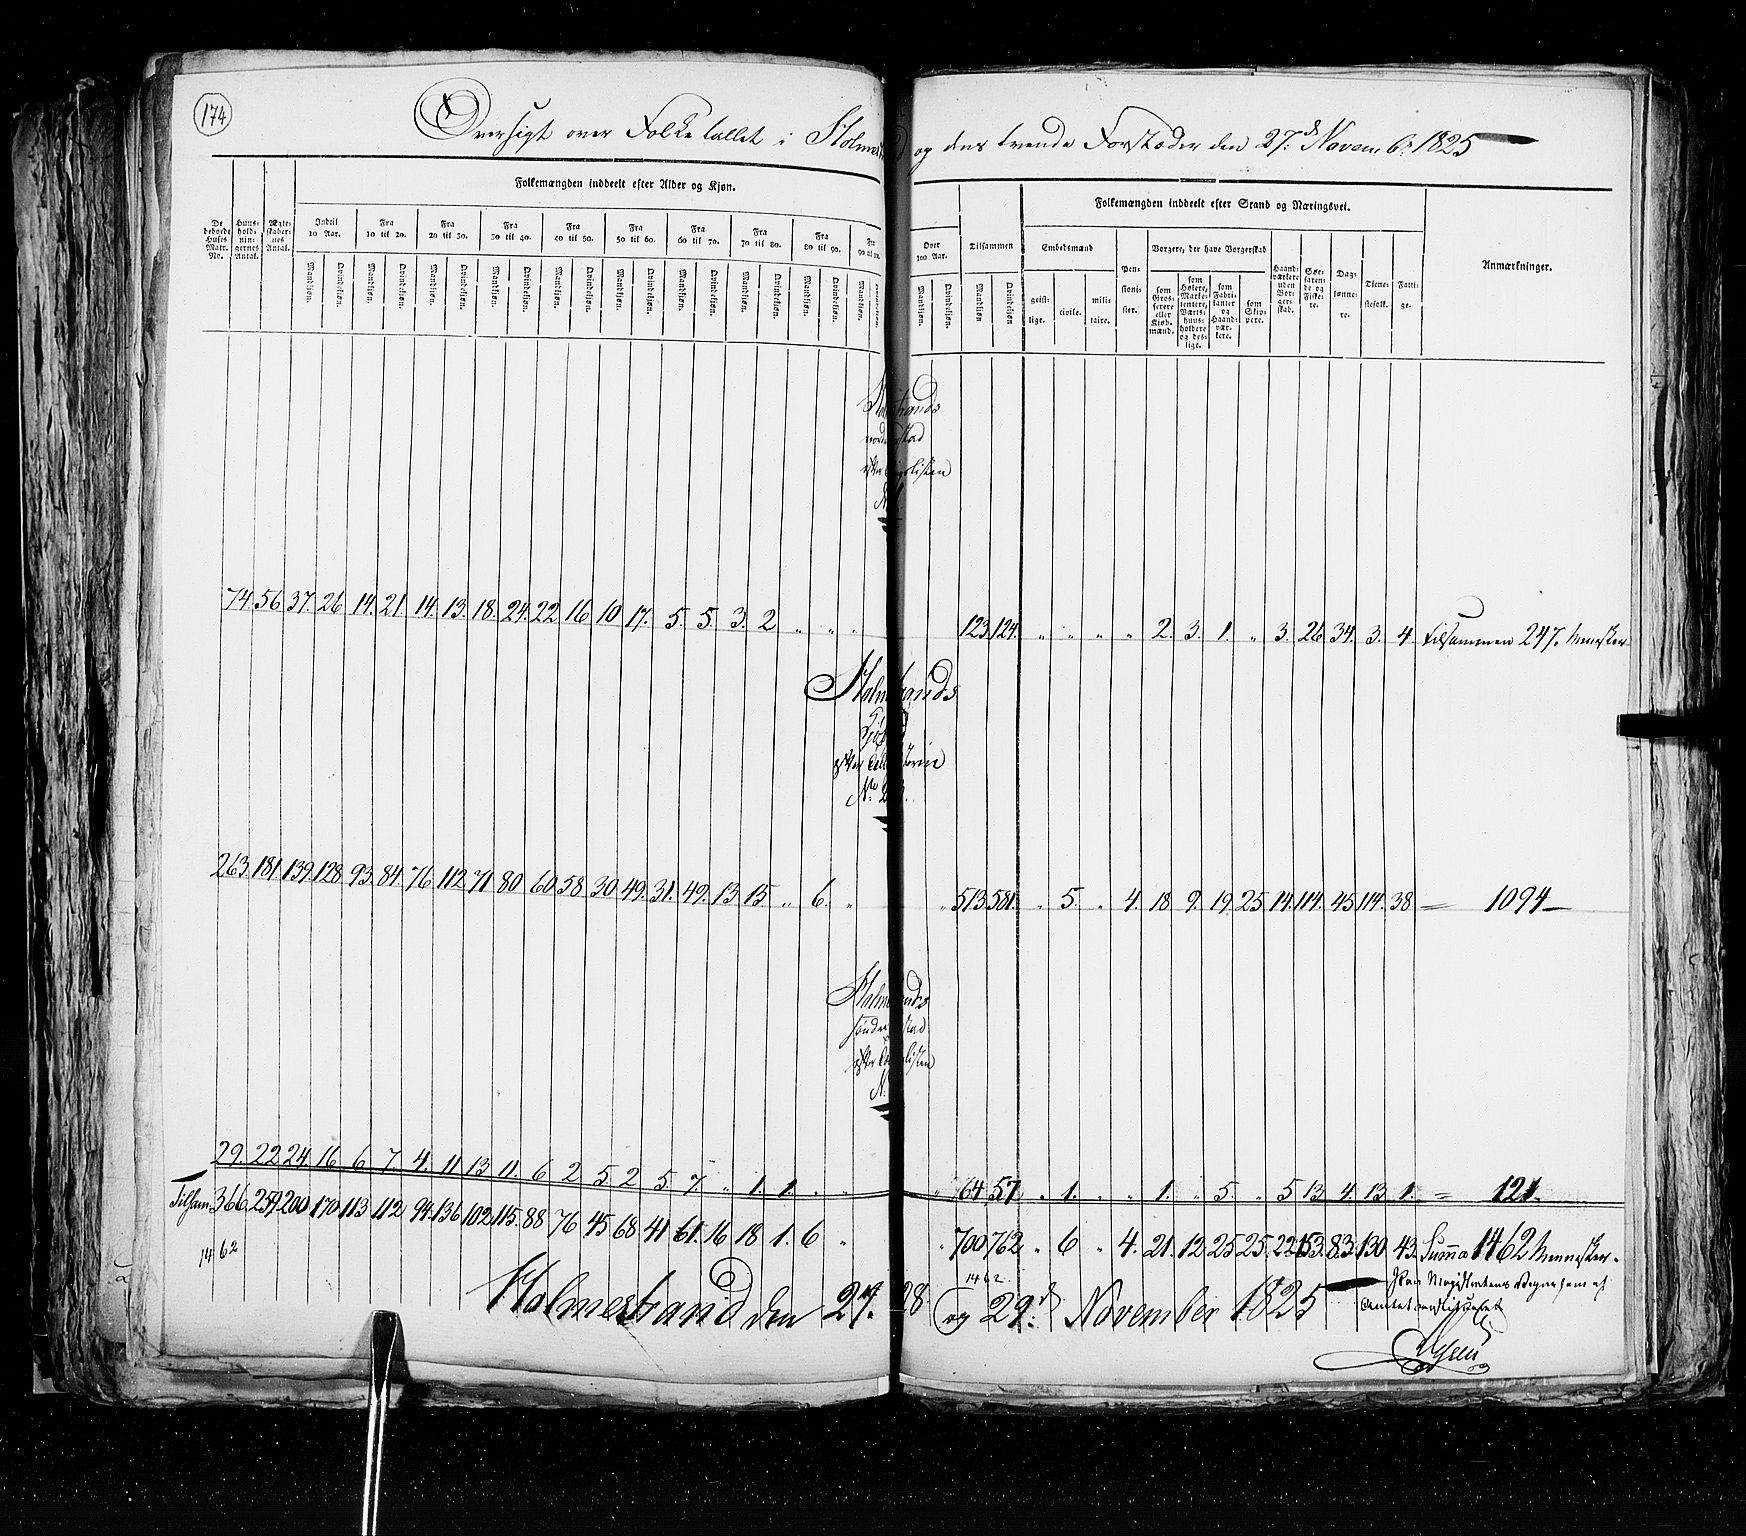 174
Oversigt over Folketallet i Holmestrand og dens tvende Forstæder den 27de Novembr 1825
Folkemængden inddeelt efter Alder og Kjøn.
De beboede Huses Matr. No.
Huus-hold-nin-gernes Antal.
Ægte-skaber-nes Antal.
Indtil 10 Aar.
Fra 10 til 20.
Fra 20 til 30.
Fra 30 til 40.
Fra 40 til 50.
Fra 50 til 60.
Fra 60 til 70.
Fra 70 til 80.
Fra 80 til 90.
Fra 90 til
Over 100 Aar.
Tilsammen
Mandkjøn. Qvindekjøn. Mandkjøn. Qvindekjøn. Mandkjøn. Qvindekjøn. Mandkjøn. Qvindekjøn. Mandkjøn. Qvindekjøn. Mandkjøn. Qvindekjøn. Mandkjøn. Qvindekjøn. Mandkjøn. Qvindekjøn. Mandkjøn. Qvindekjøn. Mandkjøn. Mandkjøn Qvindekjøn. Mandkjøn Qvindekjøn
Folkemængden inddeelt efter Stand og Næringsvei.
Embedsmænd
geist-lige. civile. mili-taire.
Pen-sioni-ster.
Borgere, der have Borgerskab
som Gros-serere eller Kjøb-mænd.
som Høkere, Marke-tentere, Værts-huus-holdere og des-lige.
som Fabri-kanter og Haand-vær-kere.
som Skip-pere.
Haand-værkere uden Bor-ger-skab.
Søe-faren-de og Fiske-re.
Dag-lønne-re.
Tiene-stefolk.
Fatti-ge.
Anmærkninger.
74. 56 37. 26 14. 21. 14. 13. 18. 24. 22 16 10 17. 5. 5. 3. 2 „ „ „ 123. 124. „ „ „ „ 2. 3. 1. „ 3. 26 34. 3. 4. tilsammen 247. Mennesker
Holmestrands
263. 181. 139. 128. 93. 84. 76 112 71 80 60 58. 30. 49. 31. 49. 13. 15. „ 6. „ „ 513. 581. „ 5. „ 4. 18. 9. 19. 25 14. 114. 45 114. 38 = 1094 —
Holmestrands
29. 22 24. 16 6. 7. 4. 11 13 11. 6 2 5 2 5. 7 „ 1. 1. „ „ „ 64. 57. „ 1. „ „ 1. „ 5. „ 5 13. 4. 13. 1. = 121.
Tilsam 366. 259 200 170 113 112 94. 136 102 115. 88 76 45 68 41 61. 16 18 1. 6 „ „ 700 762 „ 6 „ 4. 21. 12 25 25. 22 153. 83. 130. 43. Summa 1462 Mennesker.
1462
1462
Holmestrand den 27. 28 og 29de November 1825